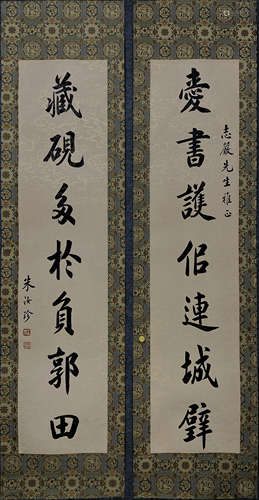 愛書護侣連城璧
志嚴先生雅正
藏硯多於負郭田
朱汝珍